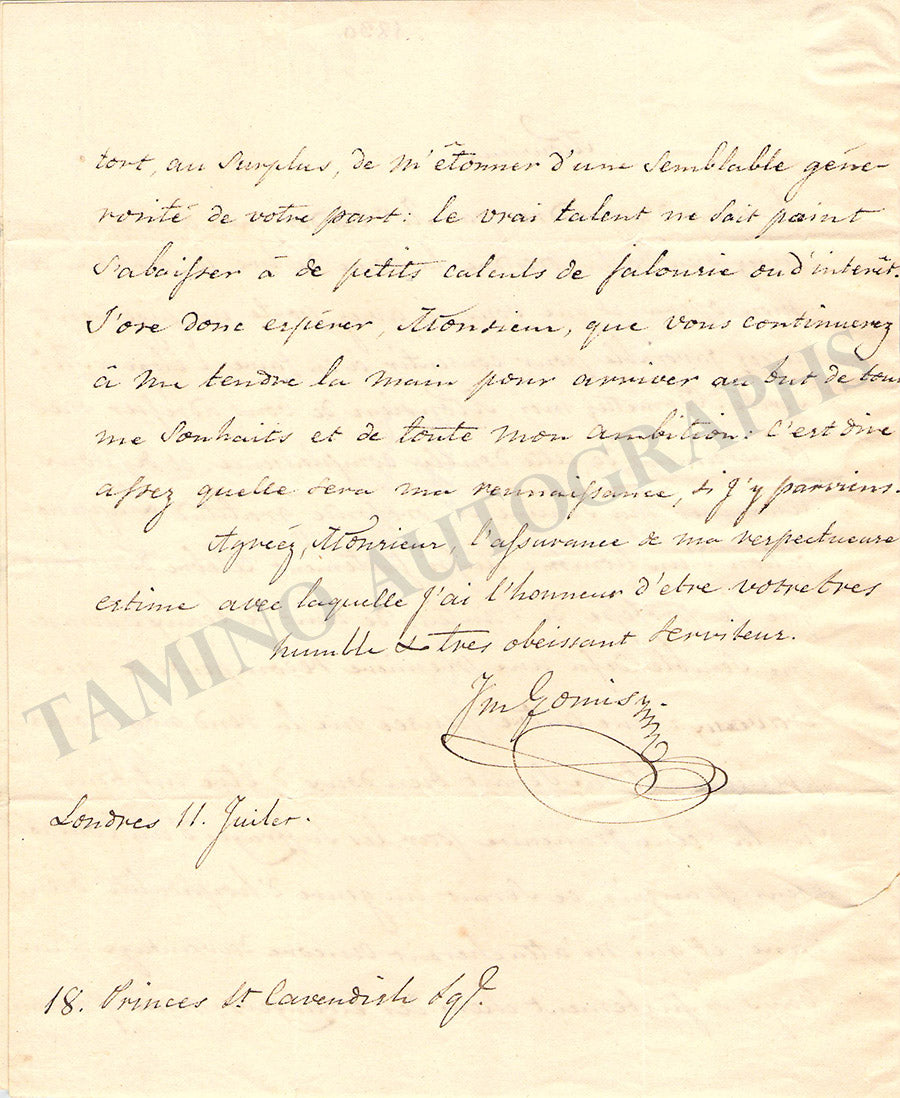 tort, au Surplus, de m'étonner d'une Semblable géné-
rosité de votre part: le vrai talent ne Sait point
S'abaisser à de petits calculs de jalousie ou d'interêt.
J'ose donc espérer, Monsieur, que vous continuerez
à me tendre la main pour arriver au but de tous
me Souhaits et de toute mon ambition: C'est dire
assez quelle Sera ma rennaissance, Si j'y parviens.
Agréez, Monsieur, l'assurance de ma respectueuse
estime avec laquelle j'ai l'honneur d'etre votre tres
humble & tres obeissant Serviteur.
Jm Gomis
Londres 11. Juilet.
18. Princes St Cavendish Sqe.
TAMINO AUTOGRAPHS